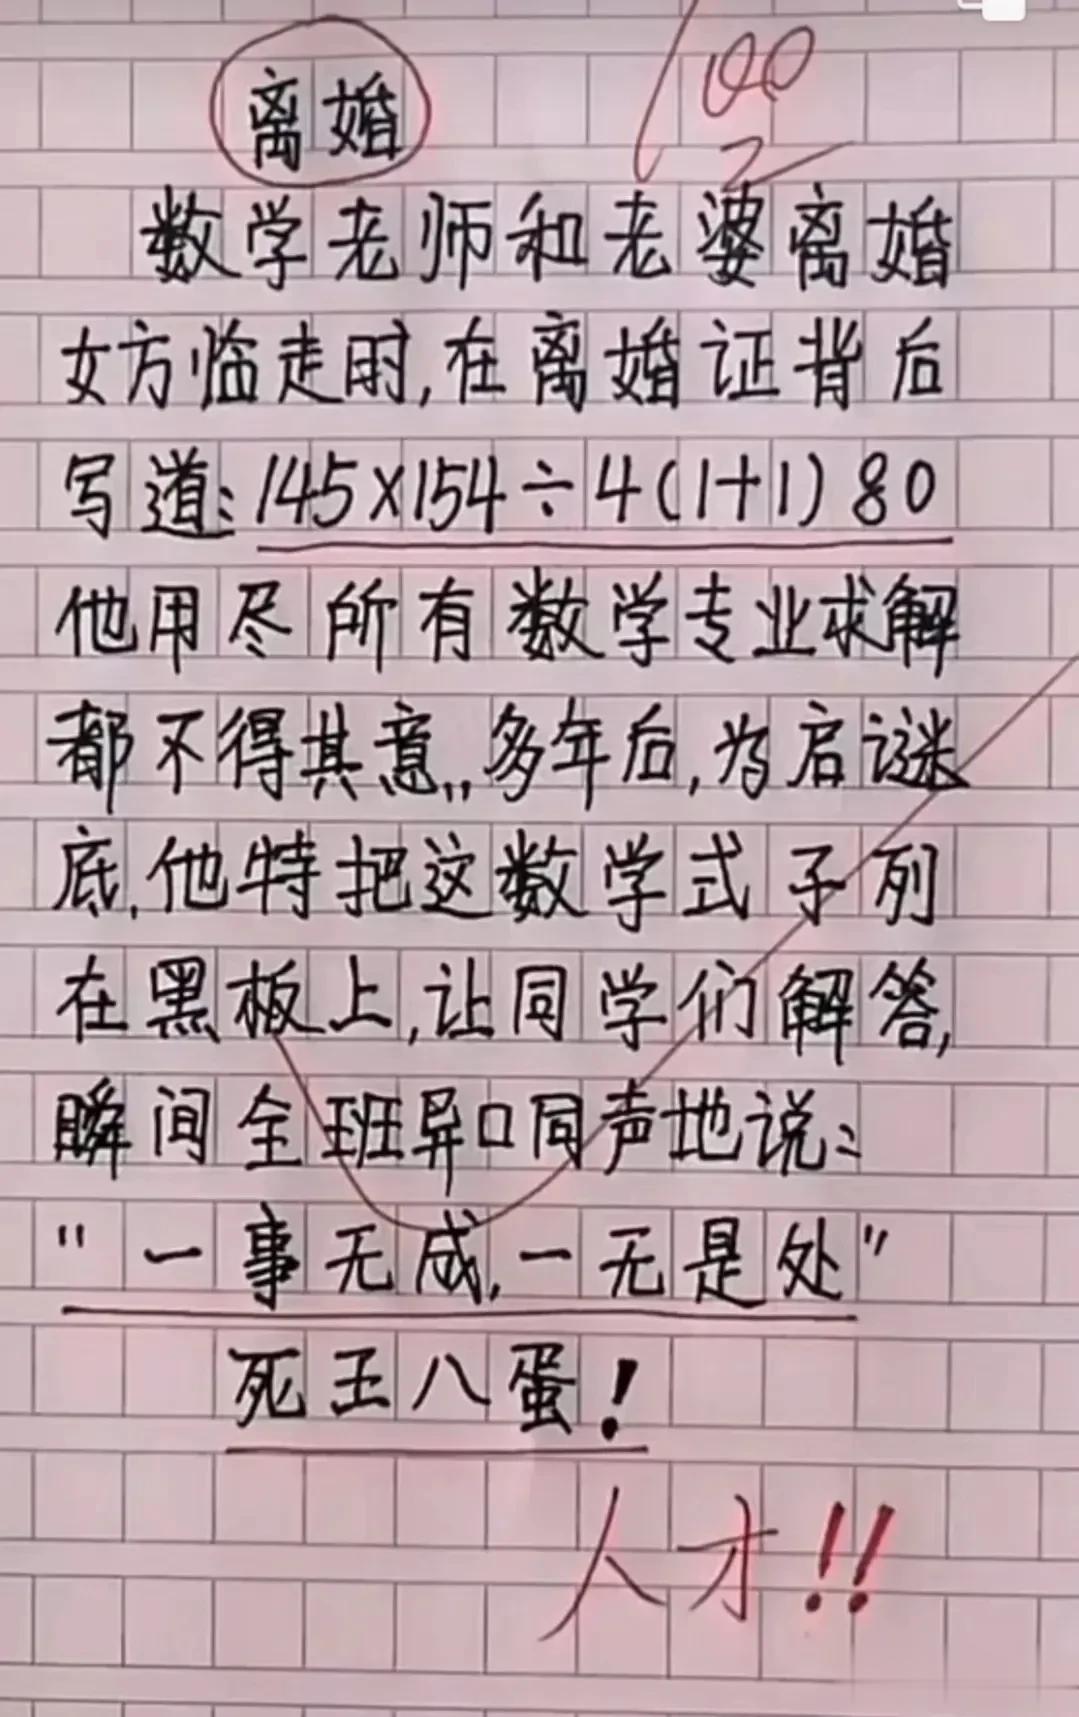 离婚
100
数学老师和老婆离婚
女方临走时,在离婚证背后
写道:145×154÷4(1+1)80
他用尽所有数学专业求解
都不得其意,,多年后,为启谜
底,他特把这数学式子列
在黑板上,让同学们解答,
瞬间全班异口同声地说:
"一事无成,一无是处"
死王八蛋!
人才!!